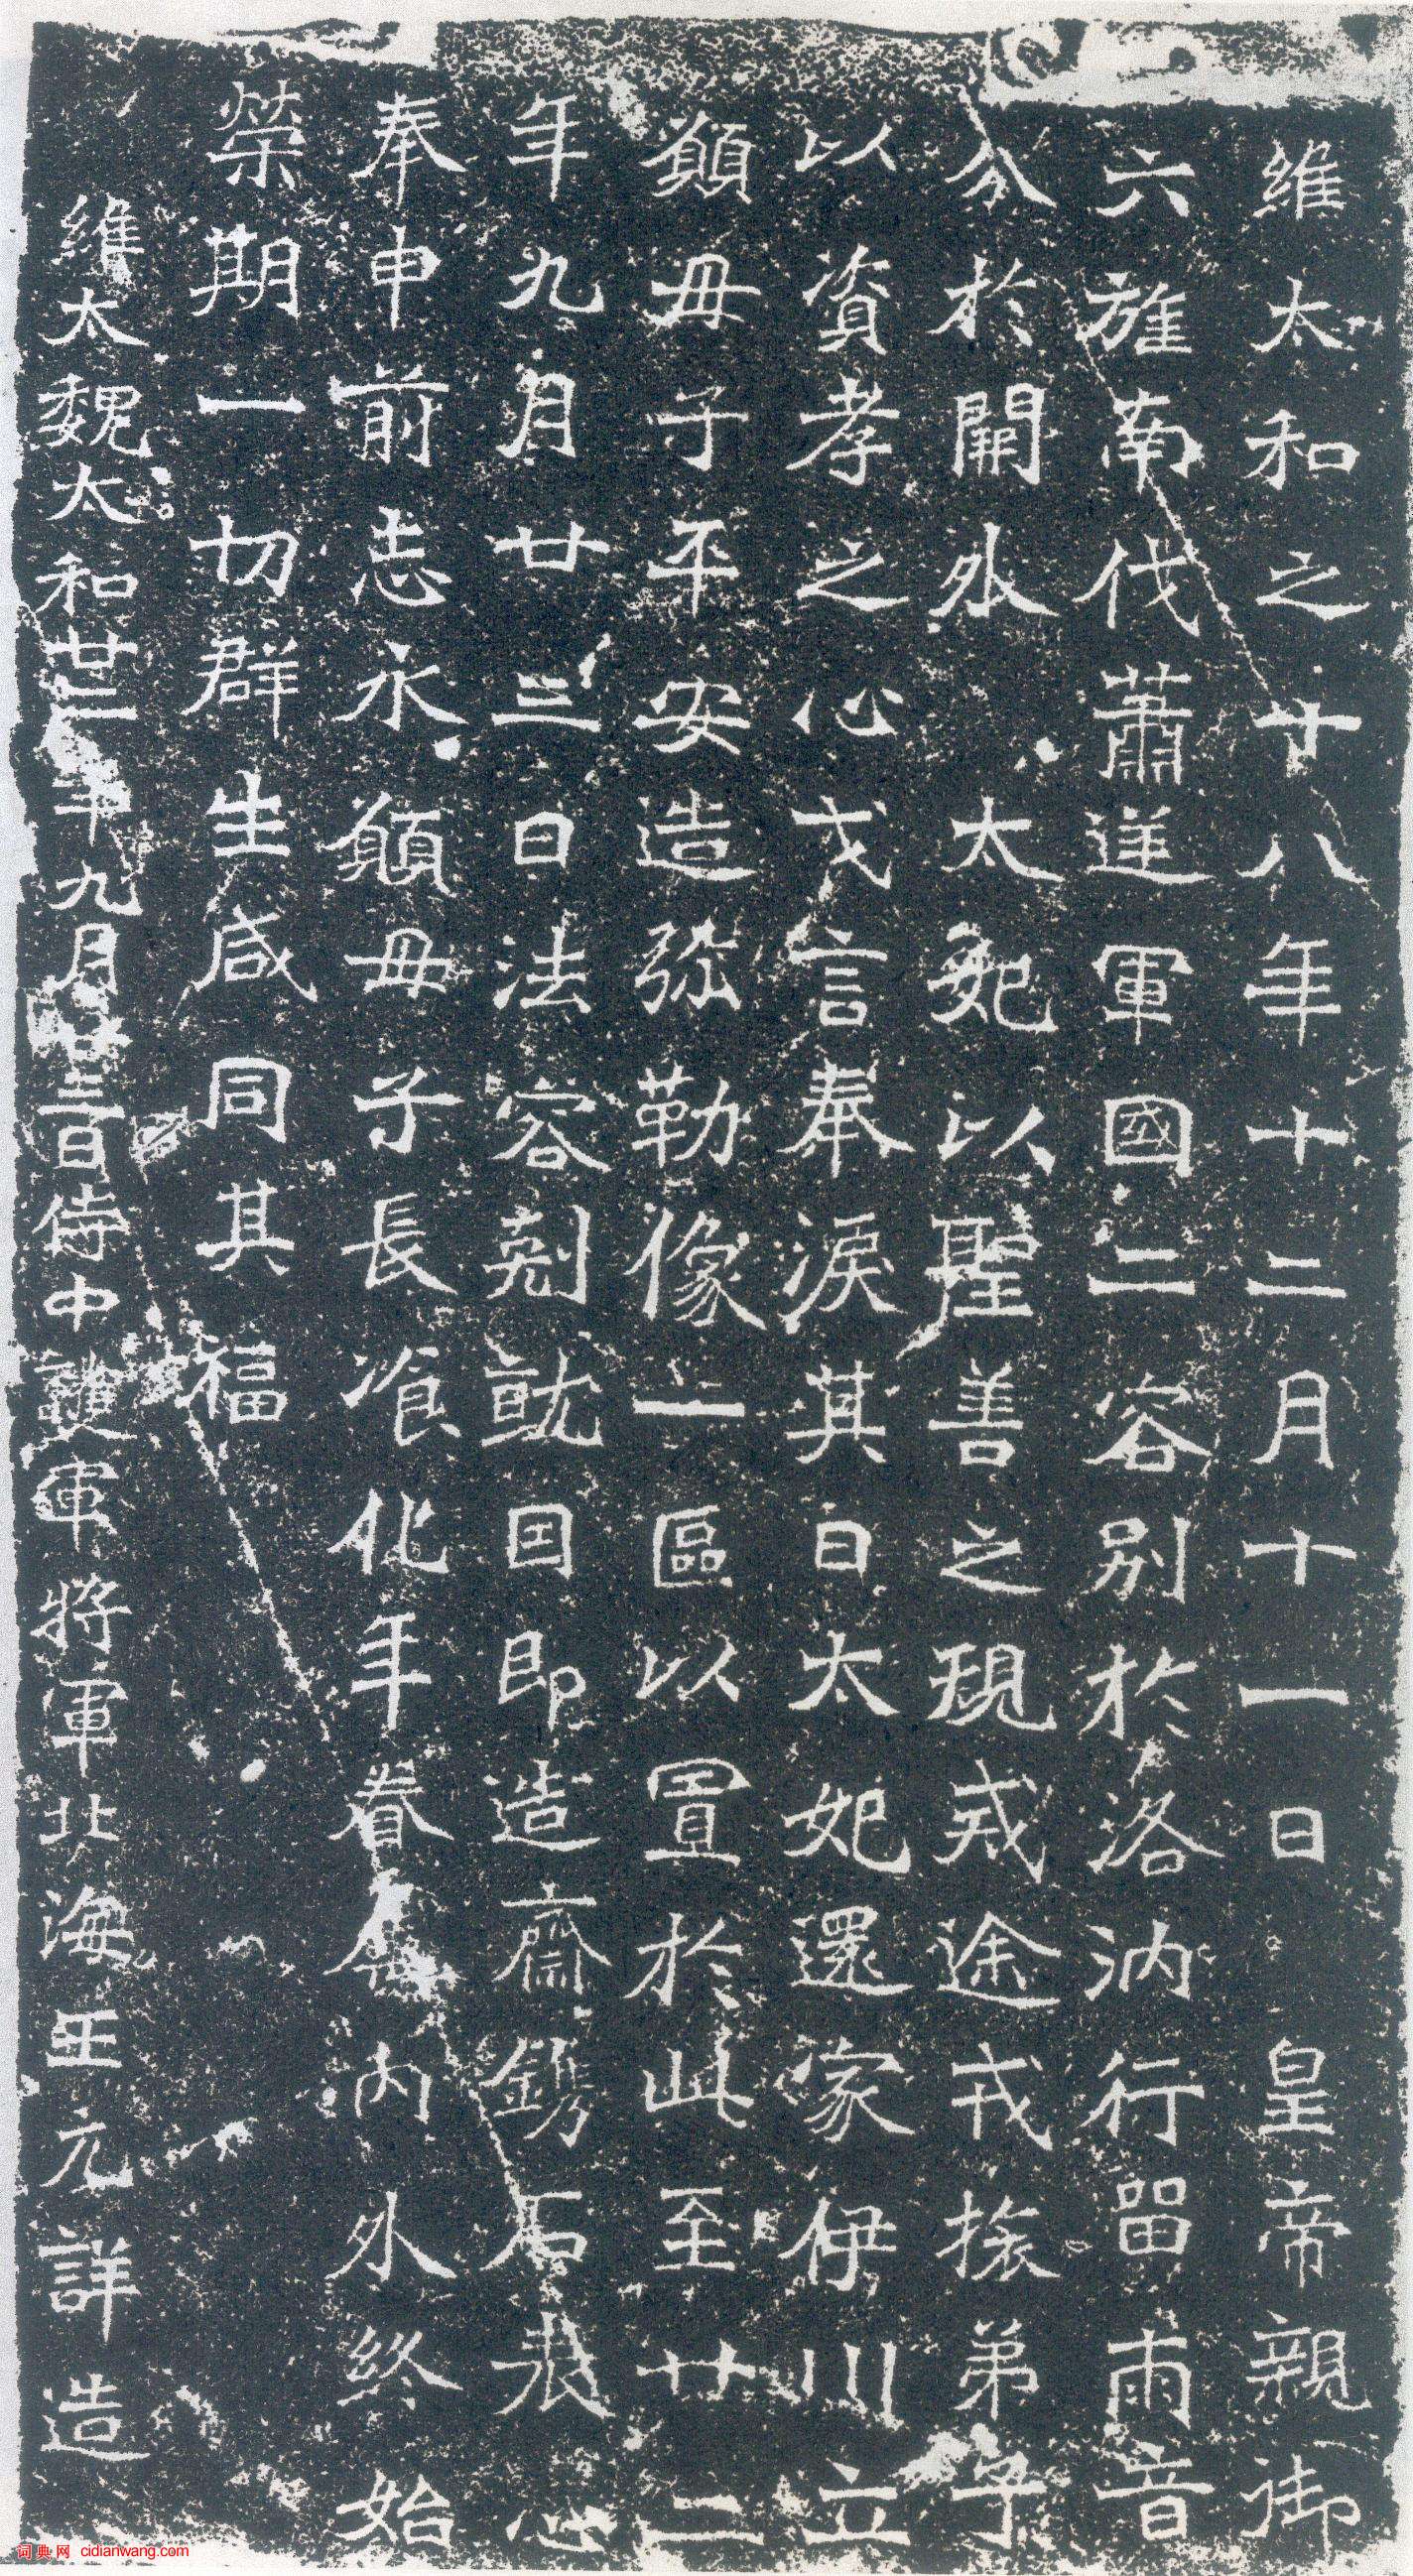 維太和之十八年十二月十一日皇帝親御
六旌南伐蕭逆軍國二容別於洛汭行留兩音
分於闕外太妃以聖善之規戒途戎旅弟子
以資孝之心戈言奉淚其日太妃還家伊川立
願母子平安造弥勒像一區以置於此至廿二
年九月廿三日法容剋就因即造齋鐫石表心
奉申前志永願母子長飡化年眷屬內外終始
榮期一切群生咸同其福
維太魏太和廿二年九月廿三日侍中護軍將軍北海王元詳造
词典网 cidianwang.com